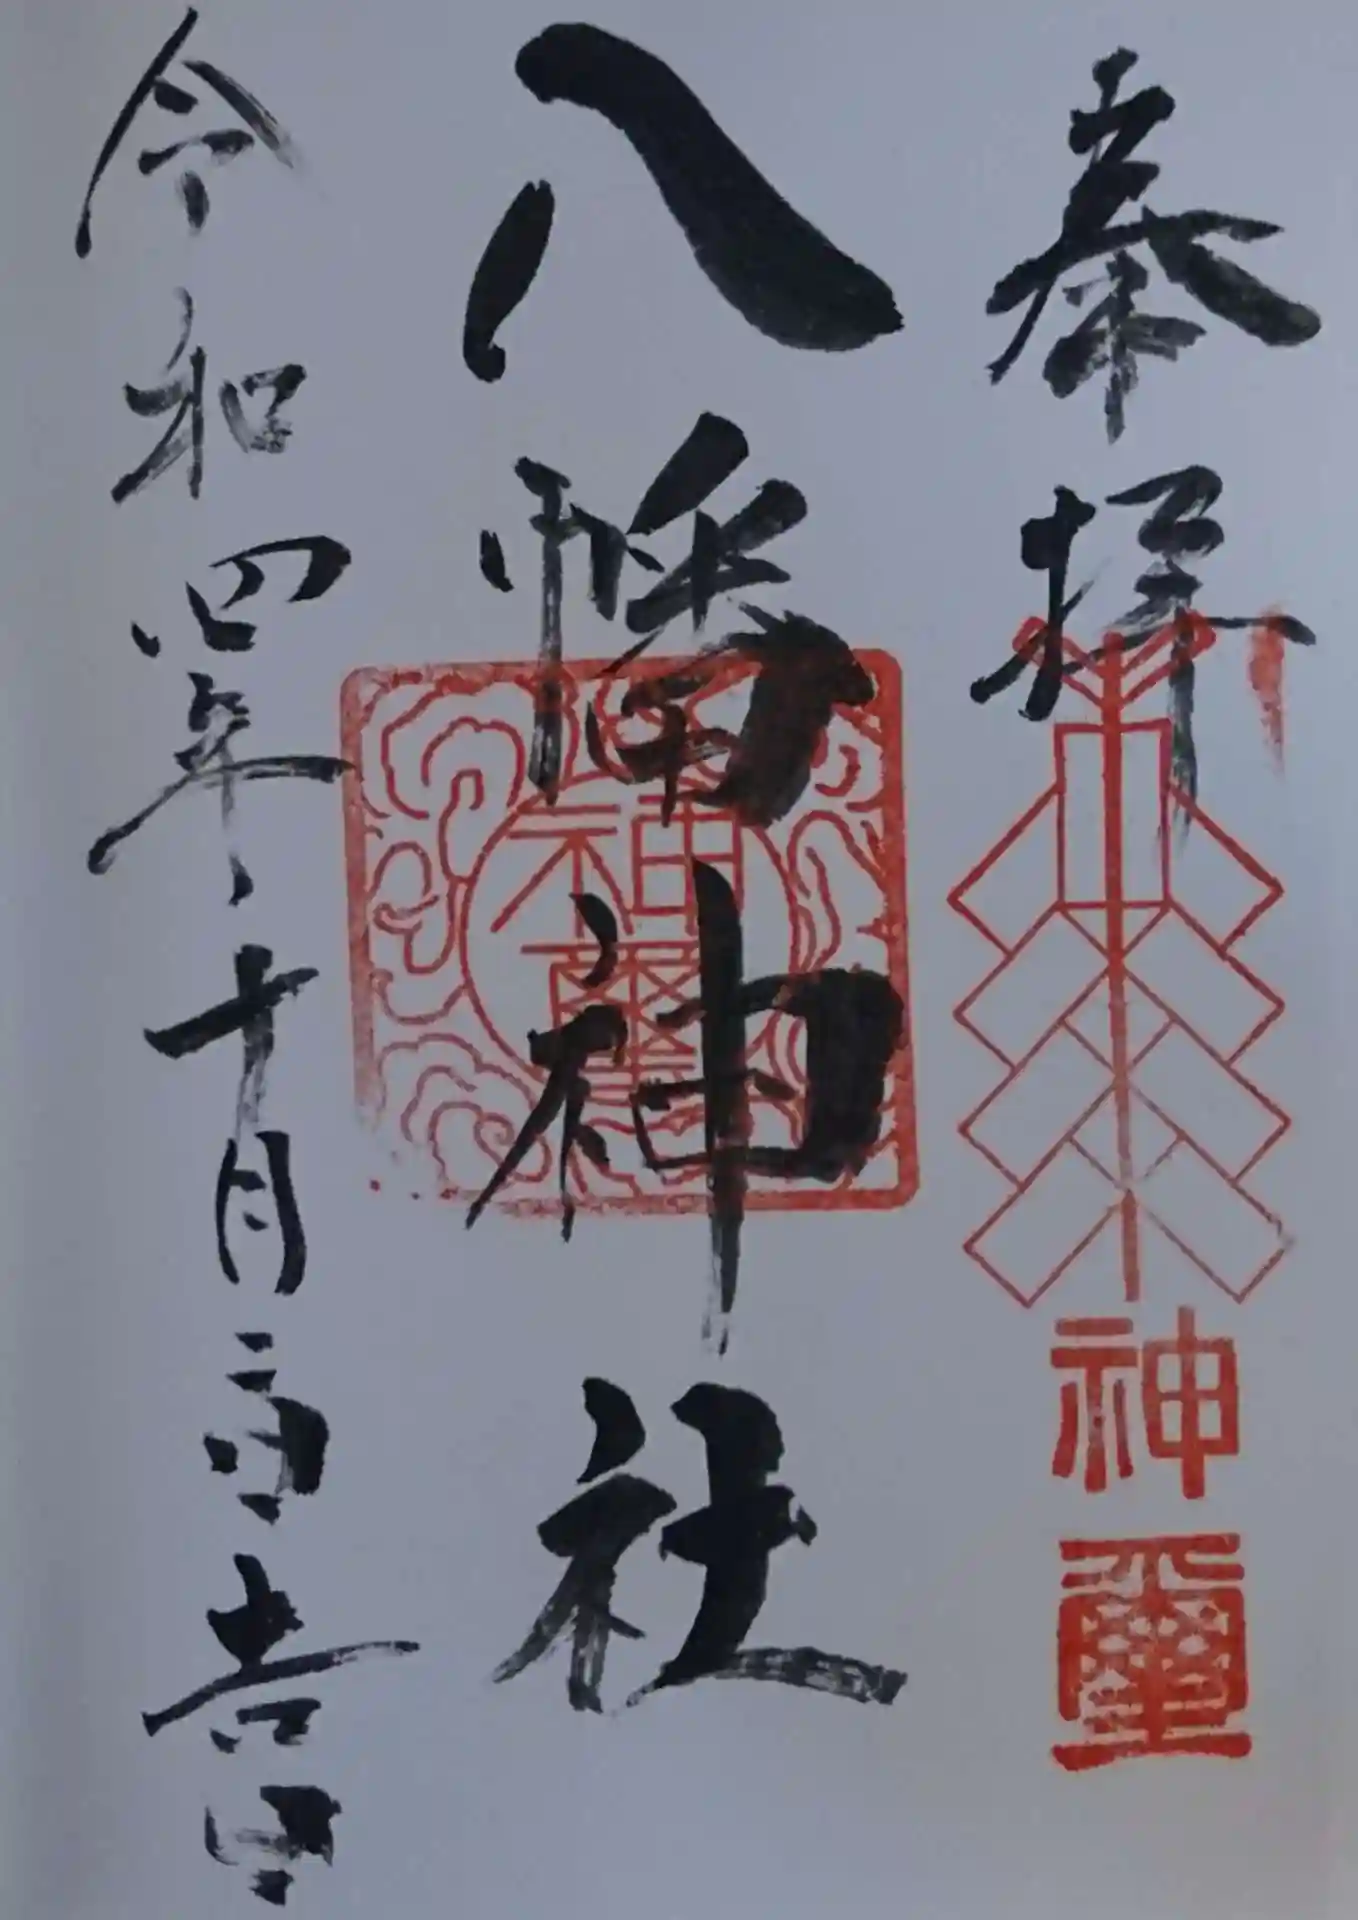 奉拝
神璽
八幡神社
神璽
令和四年十月三日吉日